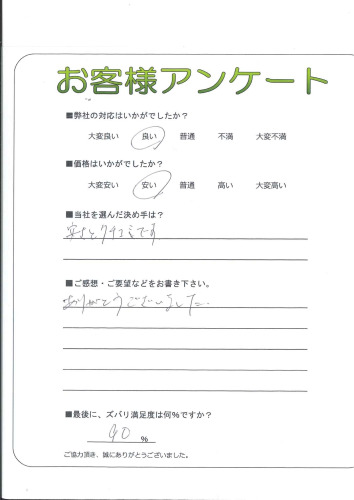 お客様アンケート
■弊社の対応はいかがでしたか？
大変良い 良い 普通 不満 大変不満
■価格はいかがでしたか？
大変安い 安い 普通 高い 大変高い
■当社を選んだ決め手は？
安さとクチコミです
■ご感想・ご要望などをお書き下さい。
ありがとうございました。
■最後に、ズバリ満足度は何%ですか？
90 %
ご協力頂き、誠にありがとうございました。